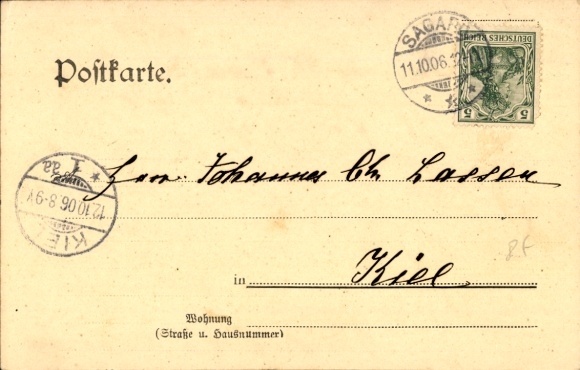 Postkarte.
SAGARD
11.10.06.
DEUTSCHES REICH
5 5
Herrn Johannes Chr. Lassen
1 aa
12.10.06.8-9V
KIEL
in Kiel
R.F
Wohnung
(Straße u. Hausnummer)